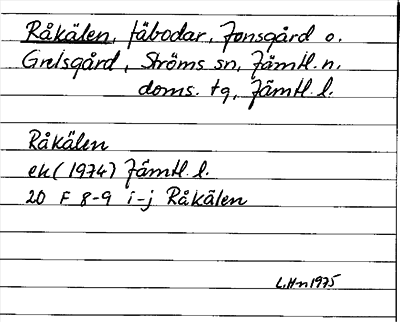 Råkälen, fäbodar, Jonsgård o.
Grelsgård, Ströms sn, Jämtl. n.
doms. tg, Jämtl. l.
Råkälen
ek (1974) Jämtl. l.
20 F 8-9 i-j Råkälen
L.Hn 1975